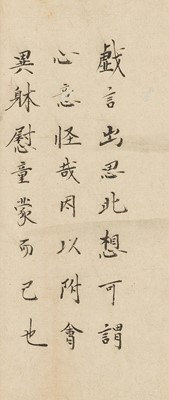 戲言出思此想可謂
心意怪哉因以附會
異躰慰童蒙而已也